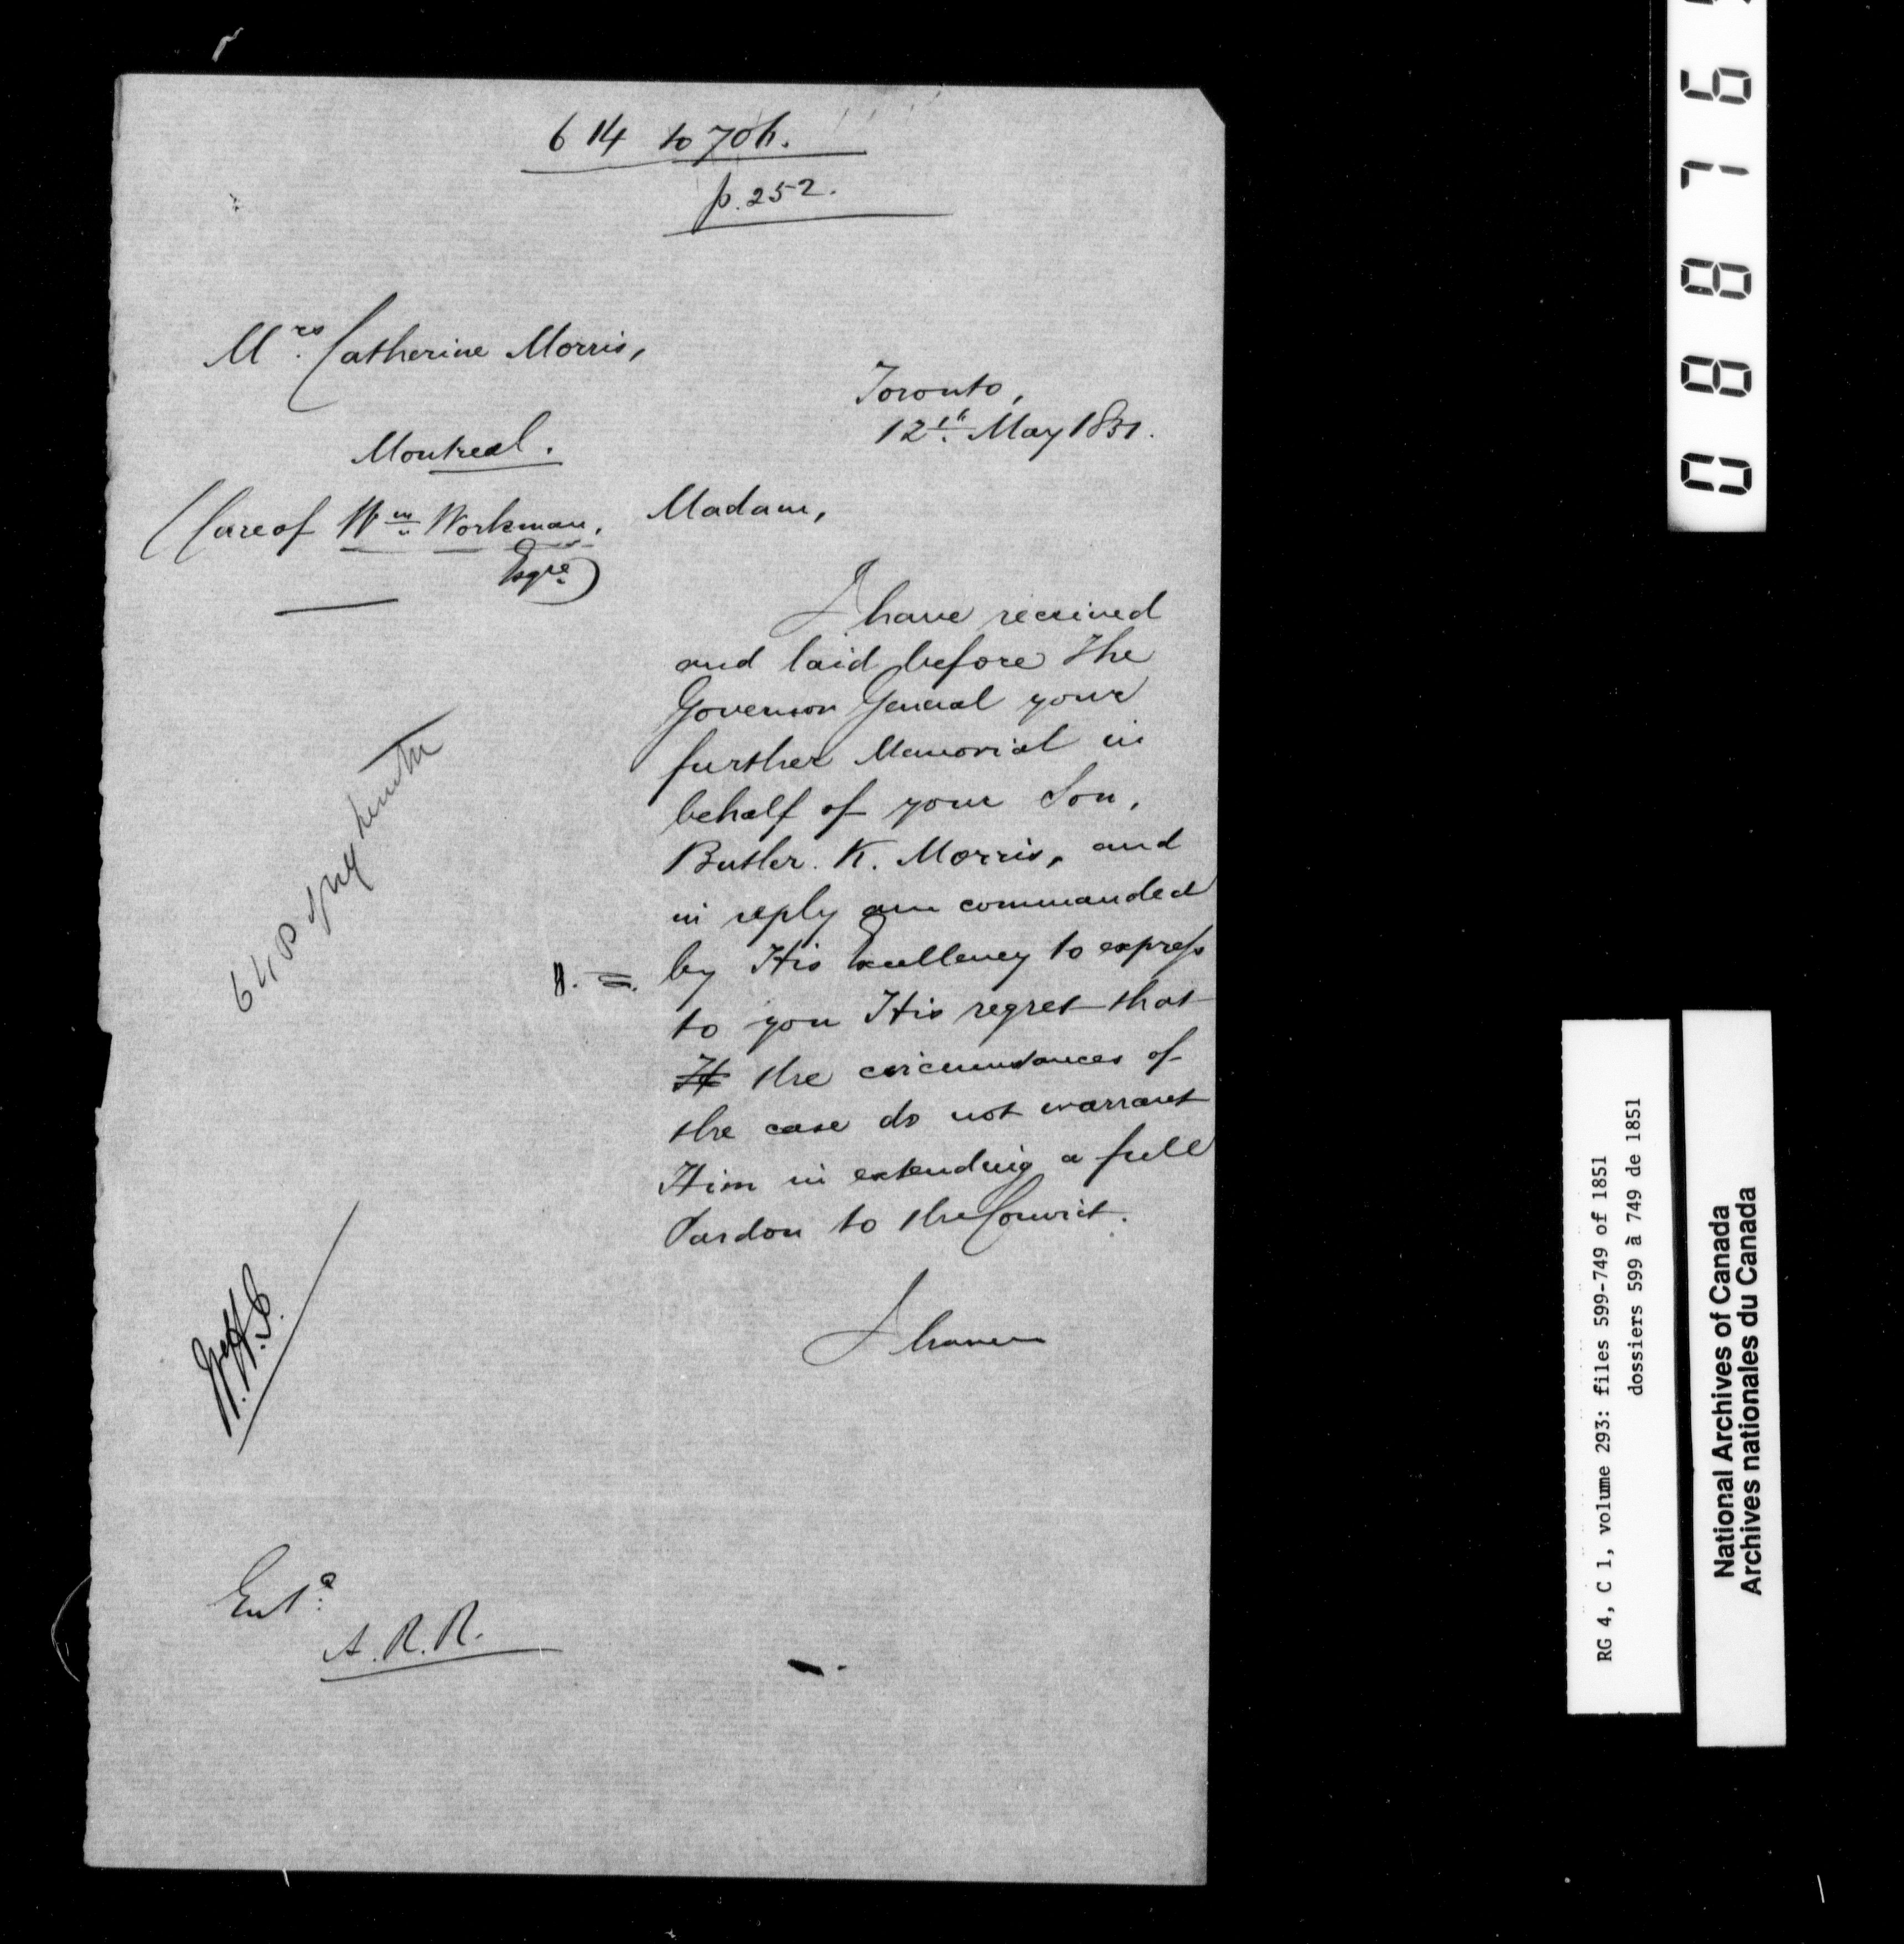 614 to 706.
p. 252.
Mrs. Catherine Morris,
Montreal.
(Care of Wm. Workman,
Esqre.)
Toronto,
12th. May 1851.
Madam,
I have received
and laid before The
Governor General your
further Memorial in
behalf of your Son,
Butler. K. Morris, and
in reply am commanded
by His Excellency to express
to you His regret that
the circumstances of
the case do not warrant
Him in extending a full
Pardon to the Convict.
I have
Entd.
A. R. R.
088765
RG 4, C 1, volume 293: files 599-749 of 1851
dossiers 599 à 749 de 1851
National Archives of Canada
Archives nationales du Canada